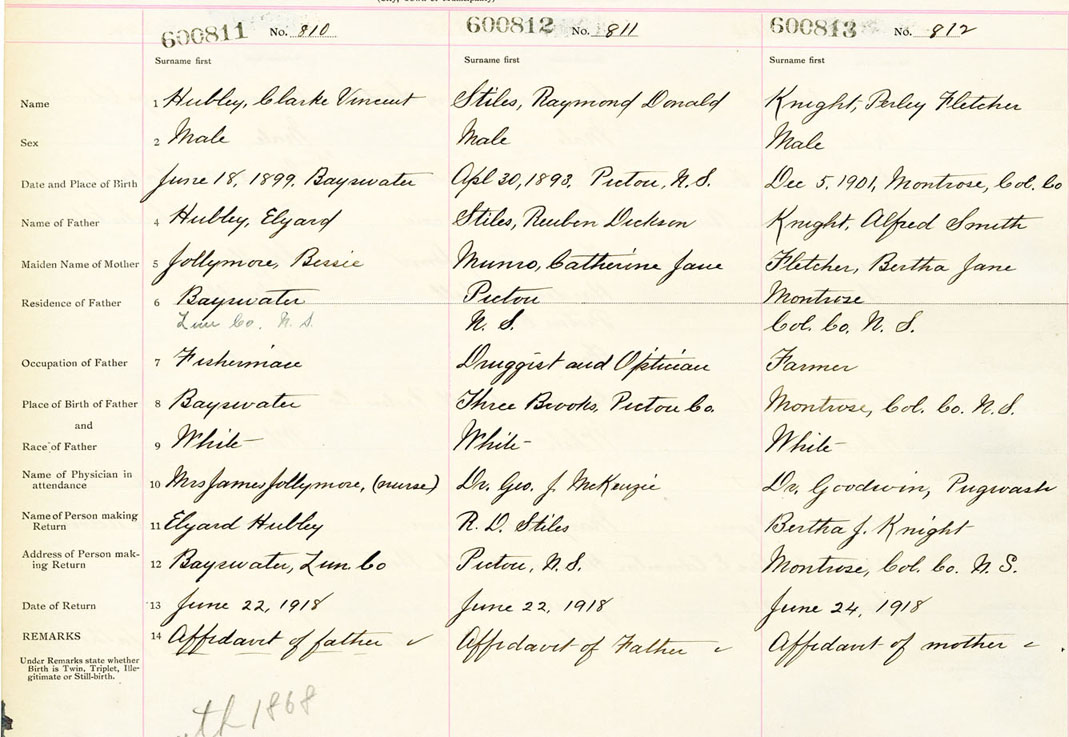 600811 No. 810 600812 No. 811 600813 No. 812
Surname first Surname first Surname first
Name 1 Hubley, Clarke Vincent Stiles, Raymond Donald Knight, Perley Fletcher
Sex 2 Male Male Male
Date and Place of Birth June 18, 1899. Bayswater Apl 30, 1893, Pictou, N.S. Dec 5, 1901, Montrose, Col. Co
Name of Father 4 Hubley, Elyard Stiles, Reuben Dickson Knight, Alfred Smith
Maiden Name of Mother 5 Jollymore, Bessie Munro, Catherine Jane Fletcher, Bertha Jane
Residence of Father 6 Bayswater Pictou Montrose
Lun Co. N.S. N.S. Col. Co. N.S.
Occupation of Father 7 Fisherman Druggist and Optician Farmer
Place of Birth of Father 8 Bayswater Three Brooks, Pictou Co. Montrose, Col. Co. N.S.
and
Race of Father 9 White White White
Name of Physician in
attendance 10 Mrs James Jollymore, (nurse) Dr. Geo. J. McKenzie Dr. Goodwin, Pugwash
Name of Person making
Return 11 Elyard Hubley R. D. Stiles Bertha J. Knight
Address of Person mak-
ing Return 12 Bayswater, Lun. Co Pictou, N.S. Montrose, Col. Co. N.S.
Date of Return 13 June 22, 1918 June 22, 1918 June 24, 1918
REMARKS 14 Affidavit of father Affidavit of Father Affidavit of mother
Under Remarks state whether
Birth is Twin, Triplet, Ille-
gitimate or Still-birth.
1868